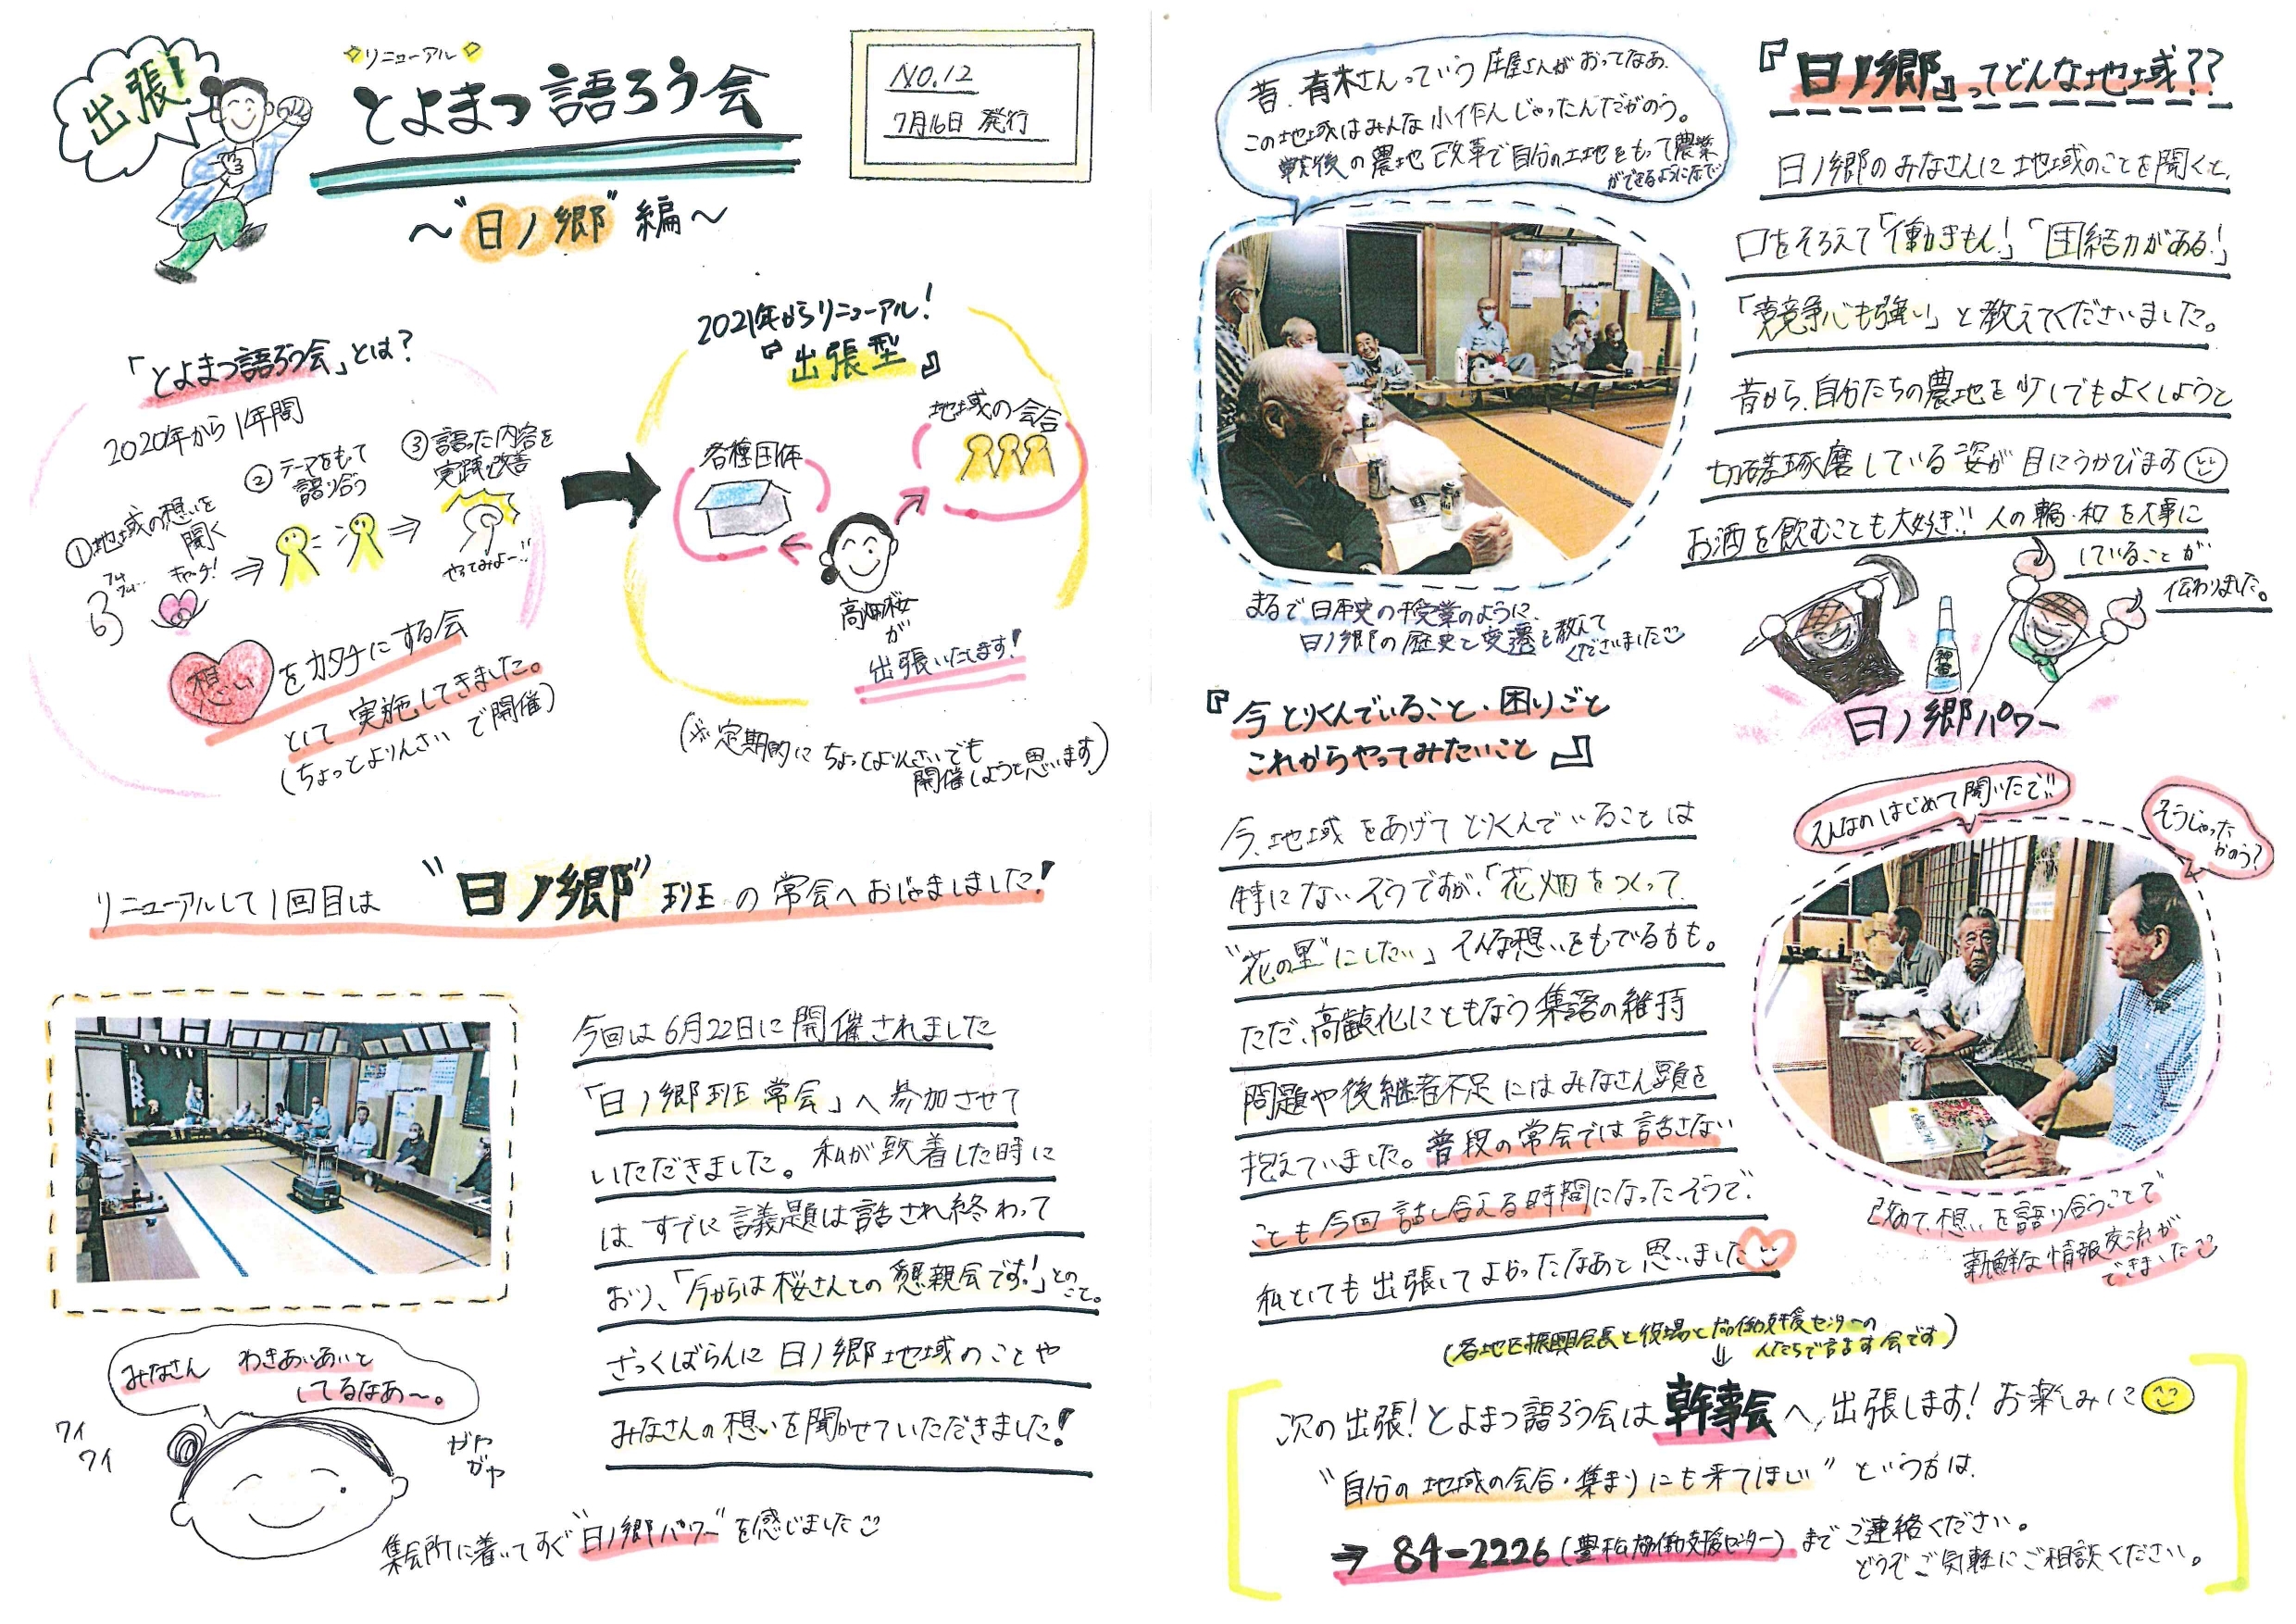 出張!
リニューアル
とよまつ語ろう会
～"日ノ郷"編～
NO.12
7月16日 発行
「とよまつ語ろう会」とは?
2020年から1年間
①地域の想いを
聞く
キャッチ!
②テーマをもって
語り合う
③語った内容を
実践・改善
やってみよー!!
想い
をカタチにする会
として 実施してきました。
(ちょっとよりんさい で開催)
2021年からリニューアル!
『出張型』
各種団体
地域の会合
高畑桜
が
出張いたします!
(※定期的に ちょっとよりんさいでも
開催しようと思います)
リニューアルして1回目は "日ノ郷"班の常会へおじゃましました!
今回は6月22日に開催されました
「日ノ郷班常会」へ参加させて
いただきました。私が到着した時に
は、すでに議題は話され終わって
おり、「今からは桜さんとの懇親会です!」とのこと。
ざっくばらんに日ノ郷地域のことや
みなさんの想いを聞かせていただきました!
みなさん わきあいあいと
してるなあ～。
ワイ
ワイ
ガヤ
ガヤ
集会所に着いてすぐ"日ノ郷パワー"を感じました
昔、青木さんっていう庄屋さんがおってなあ、
この地域はみんな小作人じゃったんだがのう。
戦後の農地改革で自分の土地をもって農業
ができるようになって
まるで日本史の授業のように、
日ノ郷の歴史と変遷を教えて
くださいました
『日ノ郷』ってどんな地域??
日ノ郷のみなさんに地域のことを聞くと、
口をそろえて「働きもん!」「団結力がある!」
「競争心も強い」と教えてくださいました。
昔から、自分たちの農地を少しでもよくしようと
切磋琢磨している姿が目にうかびます
お酒を飲むことも大好き!! 人の輪・和を大事に
していることが
伝わりました。
日ノ郷パワー
『今とりくんでいること・困りごと
これからやってみたいこと』
今、地域をあげてとりくんでいることは
特にないそうですが、「花畑をつくって、
"花の里"にしたい」そんな想いをもでる方も。
ただ、高齢化にともなう集落の維持
問題や後継者不足にはみなさん頭を
抱えていました。普段の常会では話さない
ことも今回話し合える時間になったそうで、
私としても出張してよかったなあと思いました
そんなのはじめて聞いたで!!
そうじゃった
かのう?
改めて、想いを語り合うことで
新鮮な情報交流が
できました
(各地区振興会長と役場と協働支援センターの
人たちで話す会です)
次の出張!とよまつ語ろう会は幹事会へ出張します! お楽しみに
"自分の地域の会合・集まりにも来てほしい"という方は、
→ 84-2226(豊松協働支援センター)までご連絡ください。
どうぞご気軽にご相談ください。